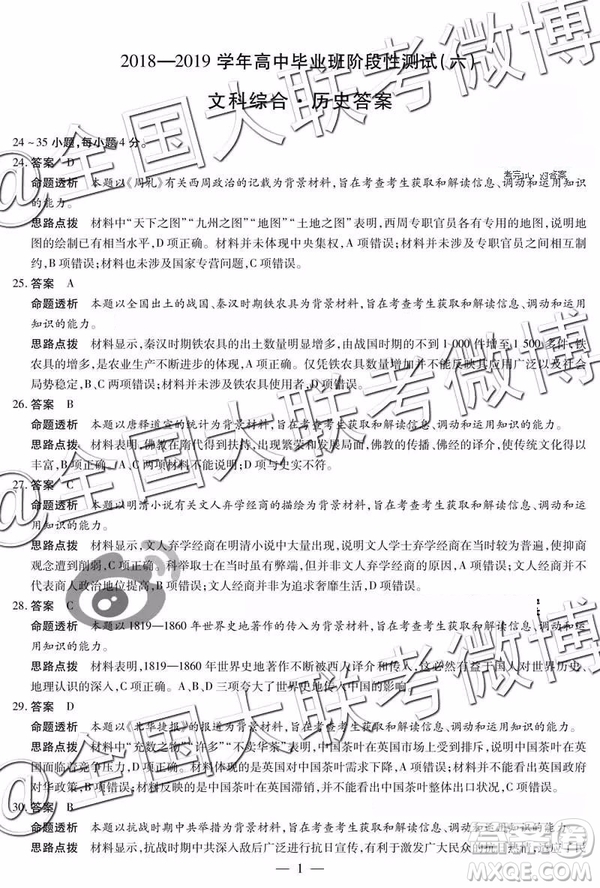 2018—2019 学年高中毕业班阶段性测试(六)
文科综合·历史答案
24～35 小题,每小题 4 分。
24. 答案 D
命题透析 本题以《周礼》有关西周政治的记载为背景材料,旨在考查考生获取和解读信息、调动和运用知识
的能力。
思路点拨 材料中“天下之图”“九州之图”“地图”“土地之图”表明,西周专职官员各有专用的地图,说明地
图的绘制已有相当水平,D 项正确。材料并未体现中央集权,A 项错误;材料并未涉及专职官员之间工作的
开展,B 项错误;材料也未涉及国家专营问题,C 项错误。
25. 答案 A
命题透析 本题以全国出土的战国、秦汉时期铁农具为背景材料,旨在考查考生获取和解读信息、调动和运用
知识的能力。
思路点拨 材料显示,秦汉时期铁农具的出土数量明显增多,由战国时期的不到 1 000 件增至 1 500 多件,铁
农具的增多,是农业生产不断进步的体现,A 项正确。仅凭铁农具数量的增加不能反映其应用广泛以及社会
局势稳定,B、C、D 三项错误。
26. 答案 B
命题透析 本题以唐释道宣的统计为背景材料,旨在考查考生获取和解读信息、调动和运用知识的能力。
思路点拨 材料表明,佛教在隋代得到扶持,出现繁荣和发展局面,佛教的传播、佛经的译介,使传统文化得以
丰富,B 项正确。A、C 两项材料不能说明;D 项与史实不符。
27. 答案 C
命题透析 本题以明清小说有关文人弃学经商的描绘为背景材料,旨在考查考生获取和解读信息、调动和运
用知识的能力。
思路点拨 材料显示,文人弃学经商在明清小说中大量出现,说明文人学士弃学经商在当时较为普遍,抑商
观念遭到削弱,C 项正确。科举取士在当时虽有弊端,但并不是文人经商的原因,A 项错误;文人经商并不
代表商人政治地位提高,B 项错误;文人经商并非为追求奢靡生活,D 项错误。
28. 答案 C
命题透析 本题以 1819—1860 年世界史地著作的传入为背景材料,旨在考查考生获取和解读信息、调动和
运用知识的能力。
思路点拨 材料表明,1819—1860 年世界史地著作在中国被大量译介和传播,这有利于促进中国人对世界历史、
地理认识的深入,C 项正确。A、B、D 三项夸大了世界史地著作译介和传播的影响。
29. 答案 D
命题透析 本题以《北华捷报》的报道为背景材料,旨在考查考生获取和解读信息、调动和运用知识的能力。
思路点拨 材料中“充数之物”“许多”“不卖华茶”等表明,中国茶叶在英国市场上受到排挤,说明中国茶叶在英国市
面临着竞争压力,D 项正确。材料并不能反映英国市场对中国茶叶需求下降,A 项错误;材料并未涉及英国的
对华政策,B 项错误;材料反映的是中国茶叶在英国滞销,并不能看出中国茶叶整体出口状况,C 项错误。
30. 答案 B
命题透析 本题以抗战时期中共举措为背景材料,旨在考查考生获取和解读信息、调动和运用知识的能力。
— 1 —
@全国大联考微博
答案圈
MXQE.COM